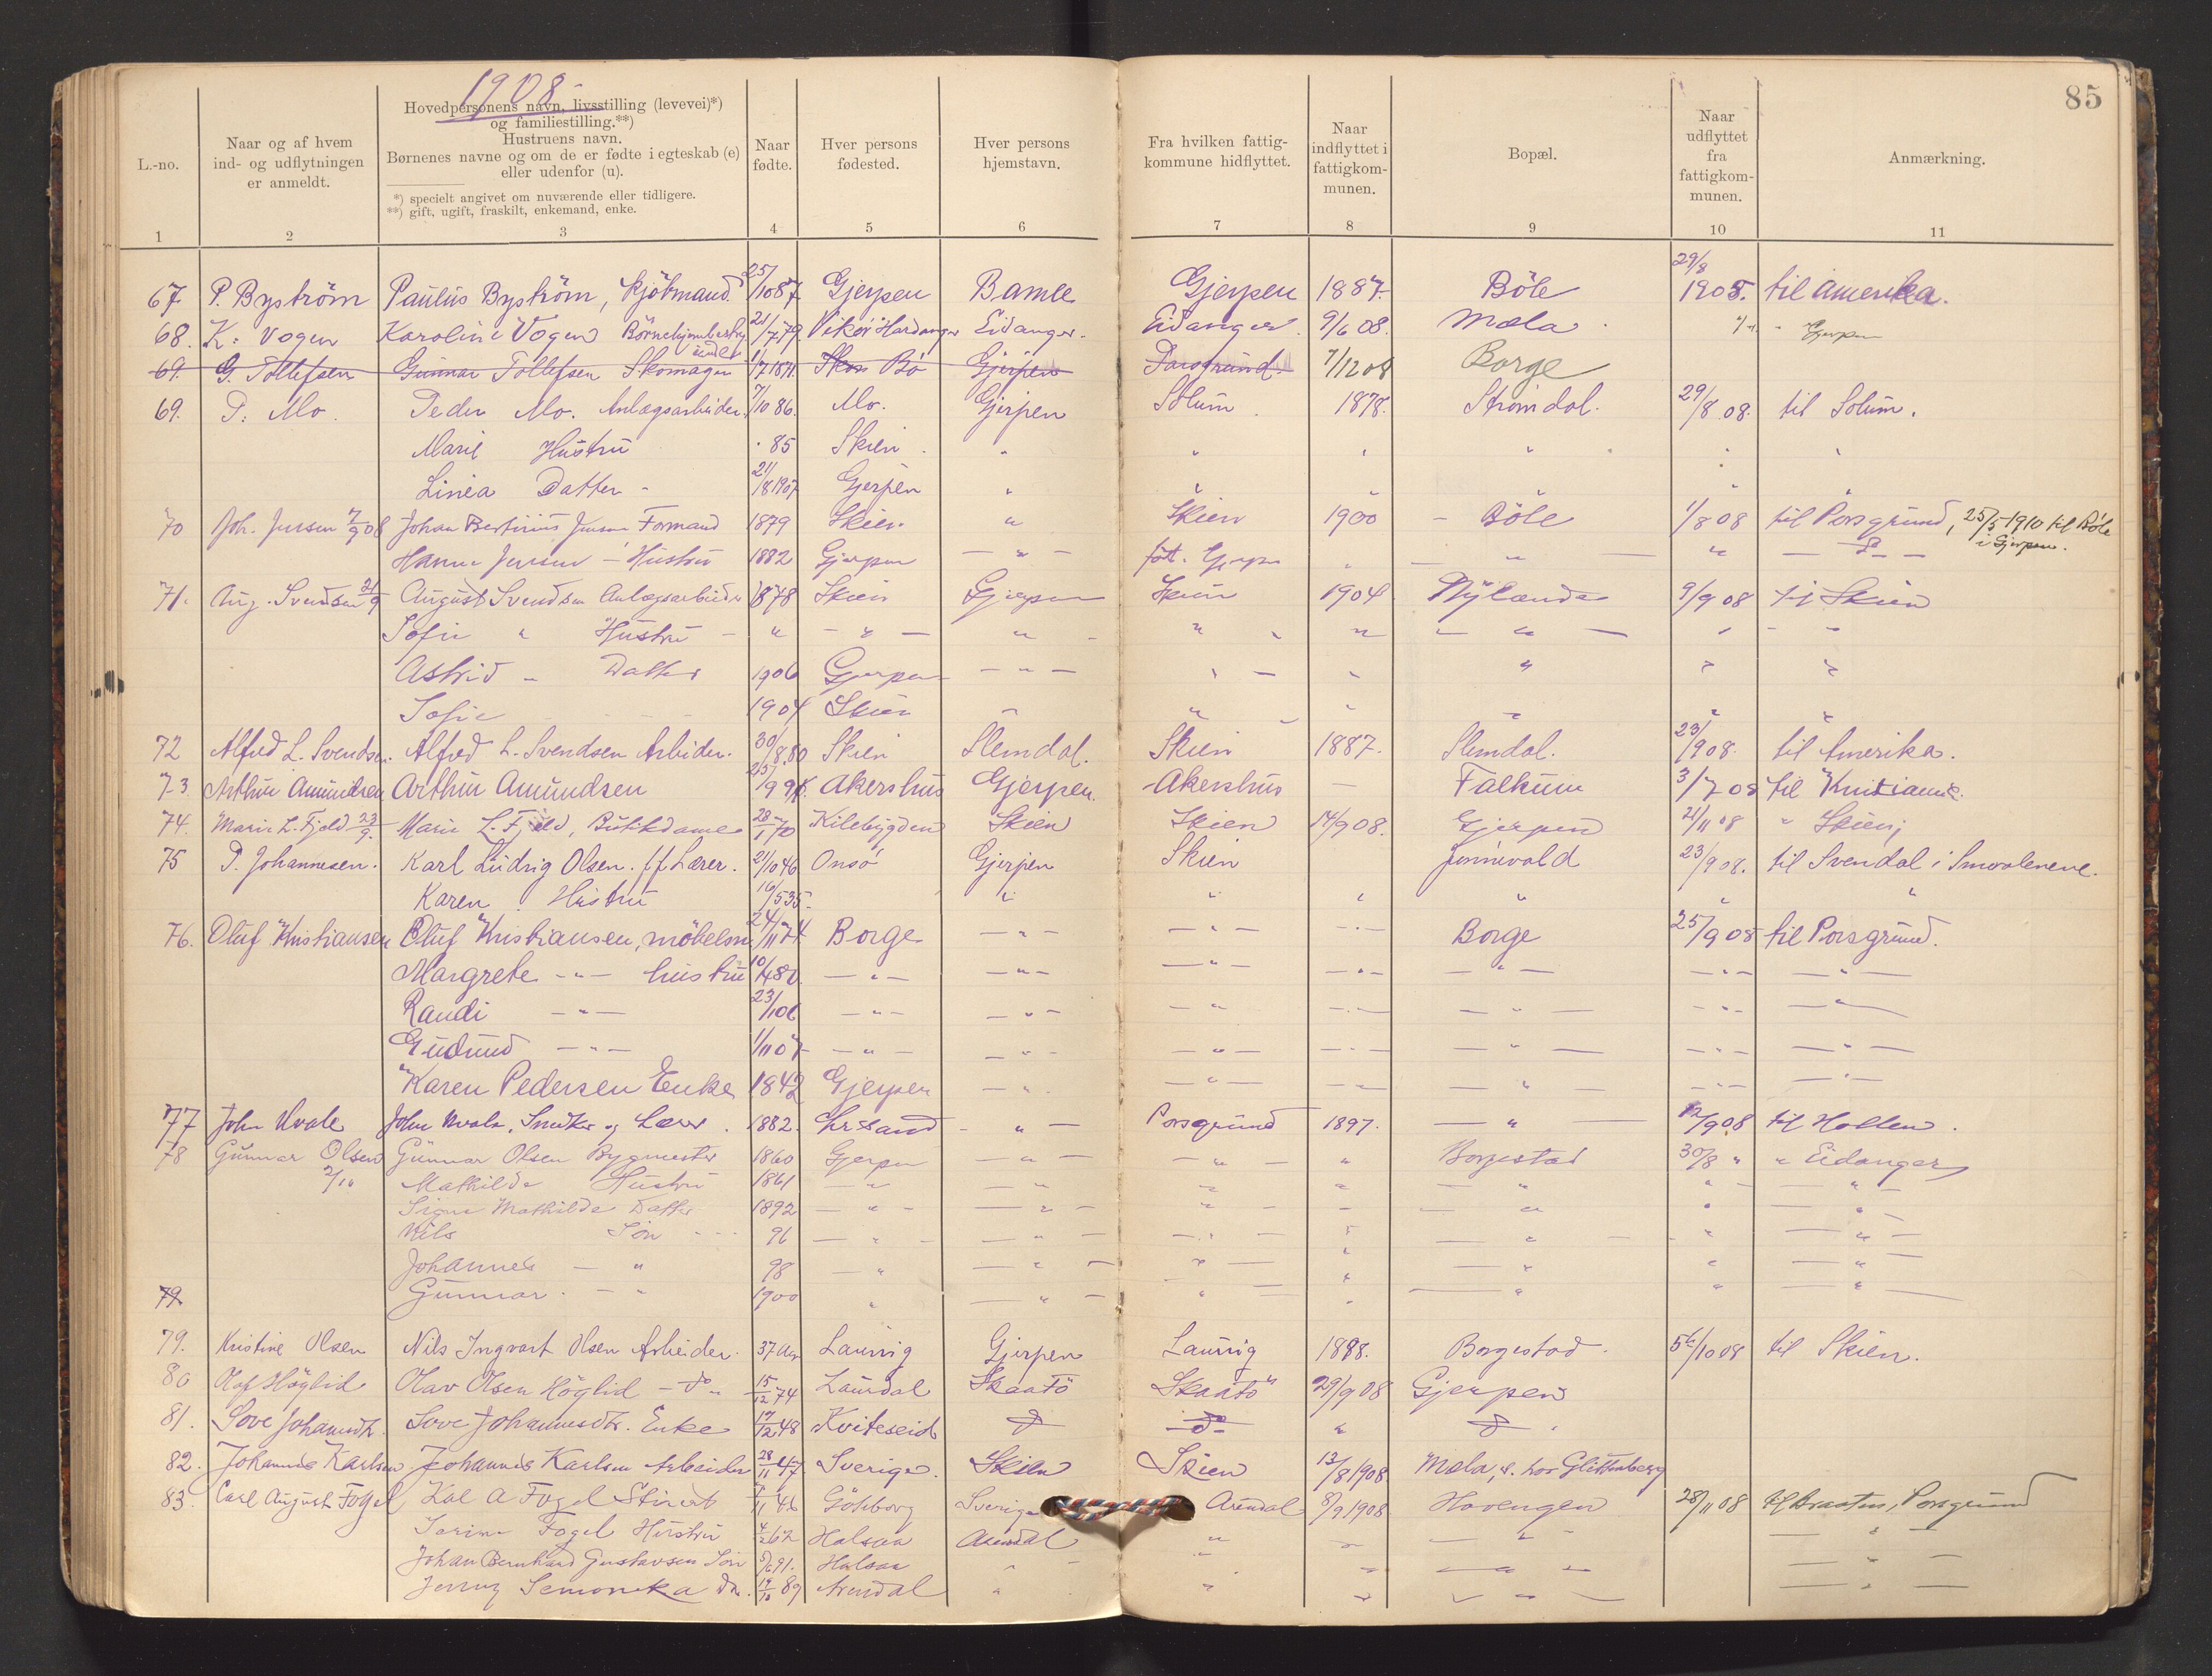 1908
85
L.-no.
Naar og af hvem ind- og udflytningen er anmeldt.
Hovedpersonens navn, livsstilling (levevei)*) og familiestilling.**)
Hustruens navn.
Børnenes navne og om de er fødte i egteskab (e) eller udenfor (u).
*) specielt angivet om nuværende eller tidligere.
**) gift, ugift, fraskilt, enkemand, enke.
Naar fødte.
Hver persons fødested.
Hver persons hjemstavn.
Fra hvilken fattigkommune hidflyttet.
Naar indflyttet i fattigkommunen.
Bopæl.
Naar udflyttet fra fattigkommunen.
Anmærkning.
1 2 3 4 5 6 7 8 9 10 11
67 P. Byström Paulus Byström, Kjöbmand 25/10 87 Gjerpen Bamle Gjerpen 1887. Böle 29/8 1908. til Amerika.
68. K. Vogen Karoline Vogen 21/7 79 Vikör Hardanger Eidanger. Eidanger. 9/6 08. Mæla Gjerpen
69. G. Tollefsen Gunnar Tollefsen Skomager 1/7 1871. Bö Gjerpen Porsgrund 7/12 08 Borge
69. P. Mo. Peder Mo. Anlægsarbeider. 7/10 86. Mo. Gjerpen Solum. 1878. Strömdal. 29/8 08. til Solum.
Marie Hustru 85 Skien. " " " "
Linea Datter - 21/8 1907 Gjerpen " " " " "
70 Joh. Jensen 7/9 08 Johan Bertinius Jensen Formand 1879 Skien " Skien 1900 - Böle 1/8 08 til Porsgrund, 25/5 1910 til Böle i Gjerpen.
Hanna Jensen - Hustru 1882 Gjerpen - " - födt. Gjerpen " " " - do -
71. Aug. Svendsen 21/9 August Svendsen Anlægsarbeider 1878 Skien Gjerpen Skien 1904 Nylænde 9/9 08 til Skien
Sofie " Hustru - " - " - " " " - " - " "
Astrid " Datter 1906 Gjerpen - " - " " " " "
Sofie 1904 Skien " " " " " "
72 Alfred L. Svendsen. Alfred L. Svendsen Arbeider. 30/8 80 Skien Slemdal. Skien 1887. Slemdal. 23/9 08. til Amerika.
73 Arthur Amundsen Arthur Amundsen Akershus Gjerpen. Akershus - Falkum 3/7 08 til Kristiania.
74. Marie L. Fjeld 23/9. Marie L. Fjeld, Butikdame 28/1 70 Kilebygden Skien Skien 14/9 08. Gjerpen 21/11 08 " Skien,
75 P. Johannesen. Karl Ludvig Olsen. f.f. Lærer. 21/10 46 Onsö Gjerpen Skien Jönnevald 23/9 08. til Svendal i Smaalenene.
Karen Hustru 19/5 35. " " " " " "
76. Oluf Kristiansen Oluf Kristiansen, möbelsn. 24/11 74 Borge - " - - " - - " - Borge 25/9 08 til Porsgrund.
Margrete - " - hustru 10/4 80. - " - - " - - " - - " - - " - - " - - " -
Randi - " - 23/1 06 - " - - " - - " - - " - - " - - " - - " -
Gudrund - " - 1/11 07 - " - - " - - " - - " - - " - - " - - " -
Karen Pedersen Enke 1842 Gjerpen - " - - " - - " - - " - - " - - " -
77 John Uvale John Uvale, Snedker og Lærer. 1882. Chrsand - " - Porsgrund 1897. - " - 12/9 08 til Hollen.
78 Gunnar Olsen Gunnar Olsen Bygmester 1860 Gjerpen - " - - " - " Borgestad 30/8 " " Eidanger
2/10 Mathilde Hustru 1861 - " - " " " - " " - " -
Signe Mathilde Datter 1892 - " - - " - " - " " - " -
Nils Sön - - - 96 - " - - " - - " - " - " - " - " -
Johannes - " 98 - " - " - - " - " - " " - " -
79 Gunnar. - " 1900 " - " - " " - " " - " -
79. Kristine Olsen Nils Ingvart Olsen Arbeider. 37 Aar Laurvig Gjerpen Laurvig 1898. Borgestad. 5/10 08 til Skien.
80 Olaf Höglid Olav Olsen Höglid - do - 15/12 74 Laurdal Skaatö Skaatö 29/9 08 Gjerpen
81. Sove Johannesdt. Sove Johannesdt. Enke 17/12 48 Kviteseid do do " do
82. Johannes Karlsen Johannes Karlsen Arbeider 28/11 47 Sverige. Skien Skien 13/8 1908 Mæla, hos Glittenberg
83. Carl August Fogel Kal A Fogel Göteborg Sverige Arendal 8/9 1908 Hovengen 28/11 08 til Braaten, Porsgrund
Fogel Hustru 4/2 62 Arendal " " - " - - " -
Johan Bernhard Gustavsen Sön 91. " - " " - " - - " -
Jenny 14/10 89 Arendal " " " - " - - " -